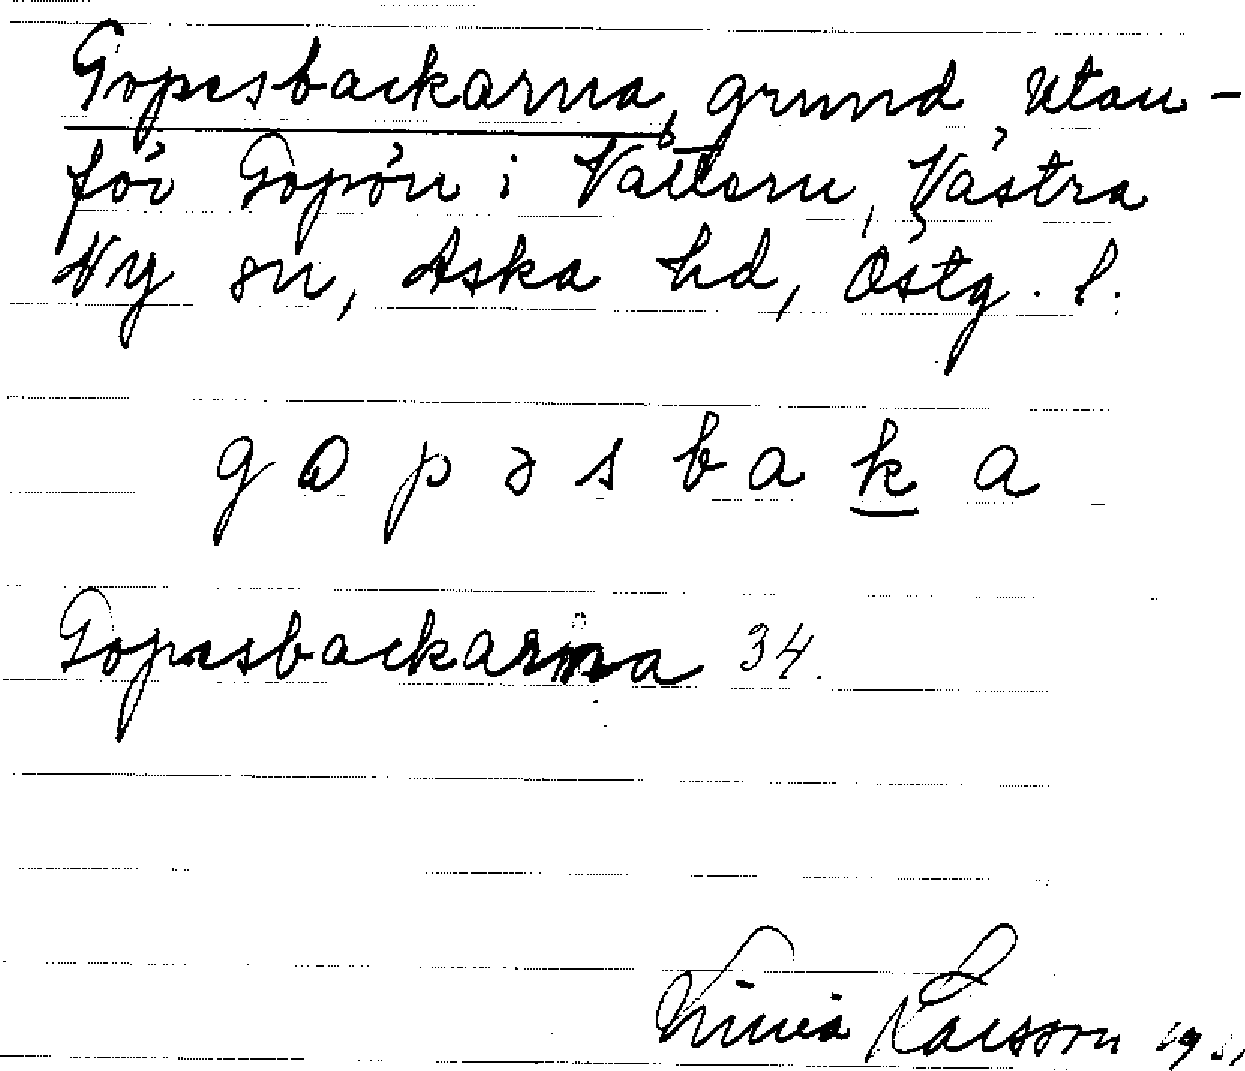 Gopesbackarna, grund utan-
för Gopön i Vättern, Västra
Ny sn, Aska hd, Östg. l.
gopəsbaka
Gopesbackarna 34.
Larsson